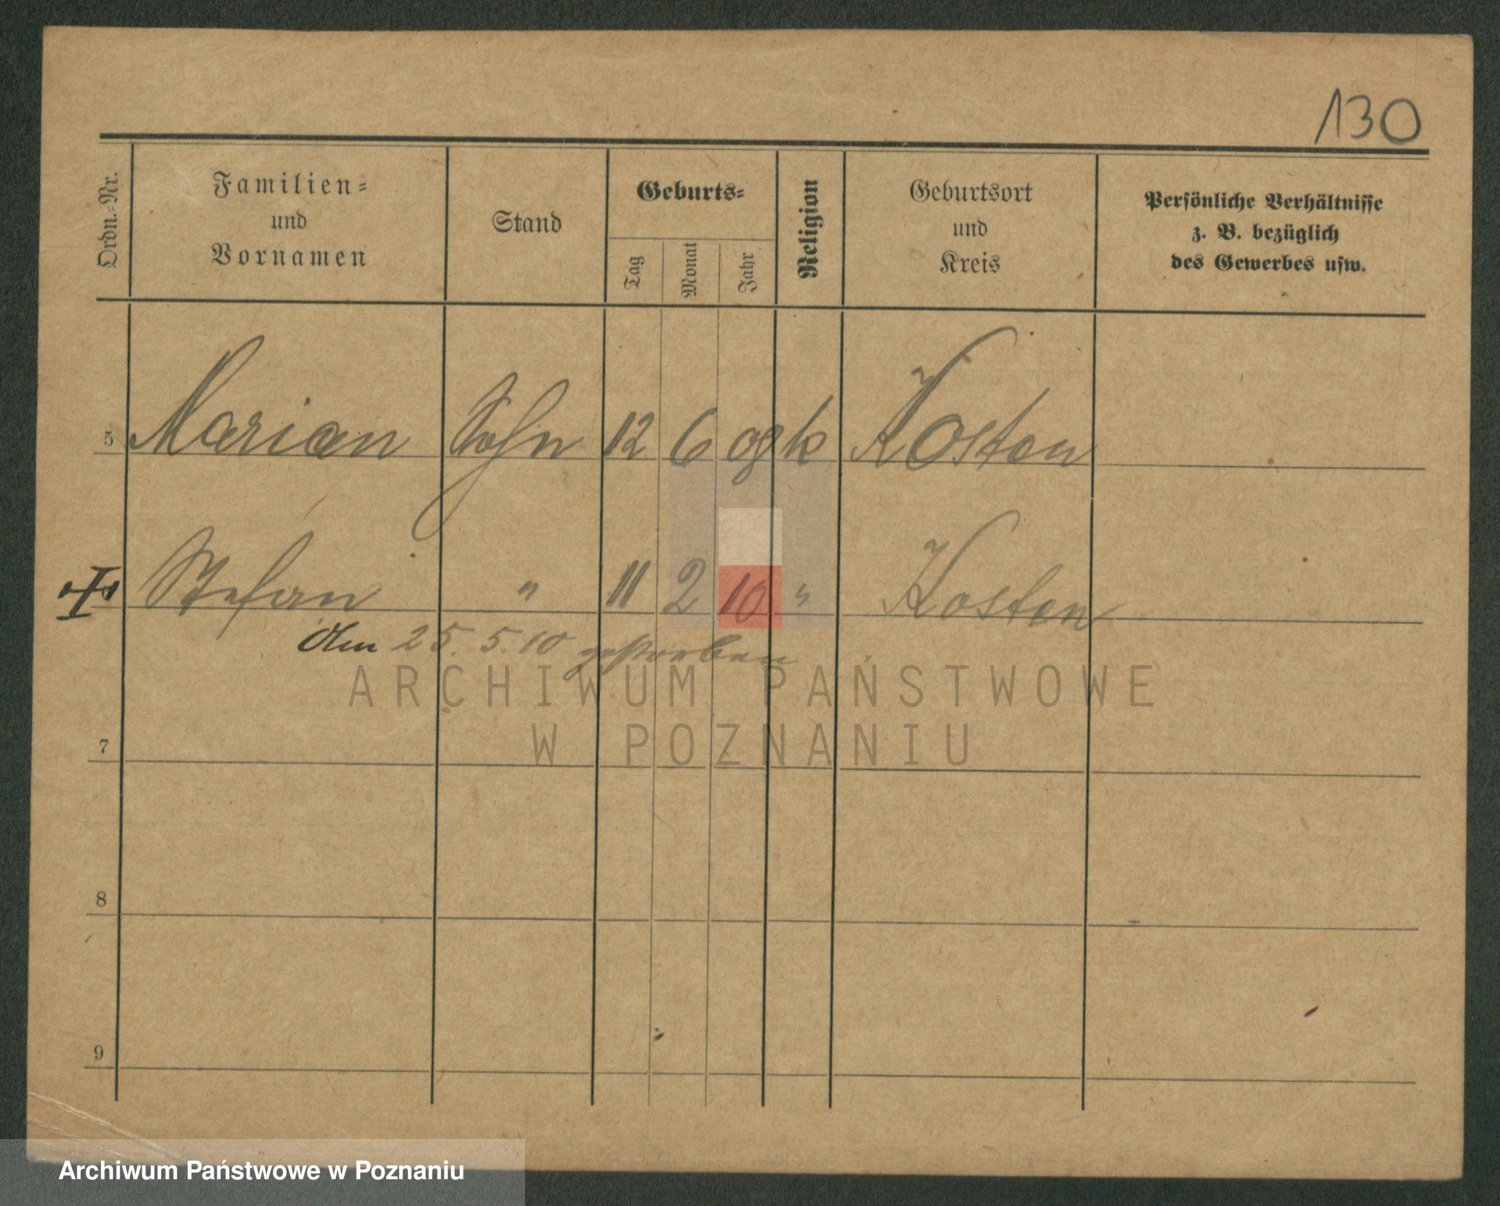 130
Ordn.-Nr.
Familien-
und
Vornamen
Stand
Geburts-
Tag
Monat
Jahr
Religion
Geburtsort
und
Kreis
Persönliche Verhältnisse
z. B. bezüglich
des Gewerbes usw.
5 Marian Sohn 12 6 08 k Kosten
Stefan " 11 2 10 " Kosten
den 25. 5. 10 gestorben
ARCHIWUM PAŃSTWOWE
W POZNANIU
7
8
9
Archiwum Państwowe w Poznaniu